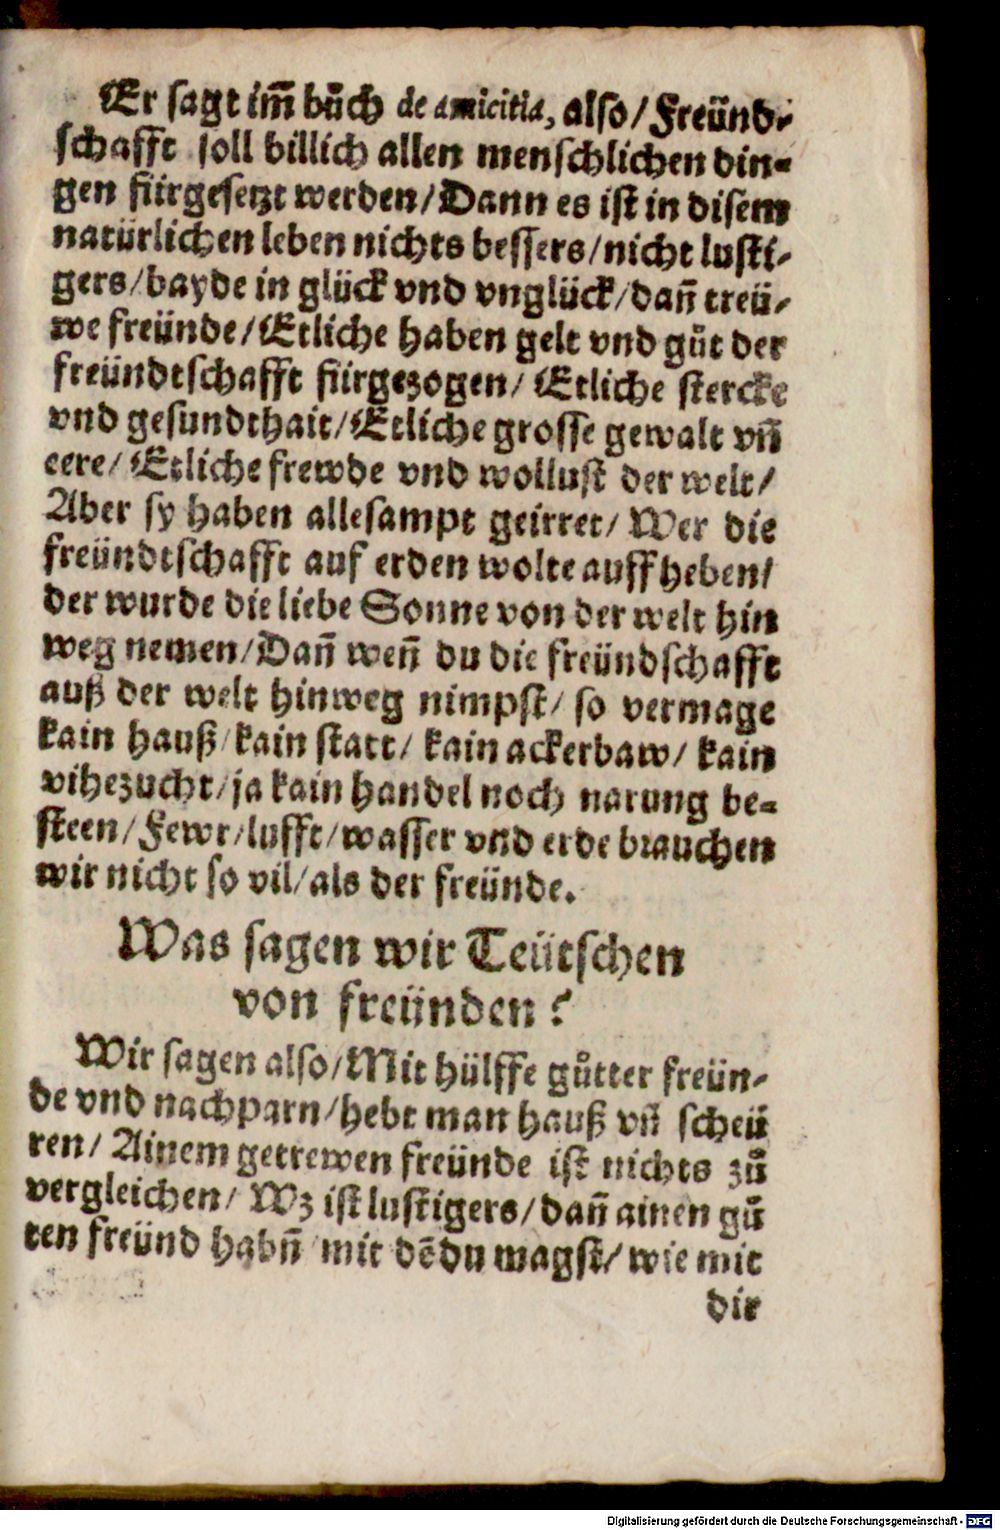 Er sagt im̃ bůch de amicitia, also/ Freünd-
schafft soll billich allen menschlichen din-
gen fürgesetzt werden/ Dann es ist in disem
natürlichen leben nichts bessers/ nicht lusti-
gers/ bayde in glück vnd vnglück/ dañ treü-
we freünde/ Etliche haben gelt vnd gůt der
freündtschafft fürgezogen/ Etliche stercke
vnd gesundthait/ Etliche grosse gewalt vñ
eere/ Etliche frewde vnd wollust der welt/
Aber sy haben allesampt geirret/ Wer die
freündtschafft auf erden wolte auffheben/
der wurde die liebe Sonne von der welt hin
weg nemen/ Dañ weñ du die freündschafft
auß der welt hinweg nimpst/ so vermage
kain hauß/ kain statt/ kain ackerbaw/ kain
vihezucht/ ja kain handel noch narung be-
steen/ Fewr/ lufft/ wasser vnd erde brauchen
wir nicht so vil/ als der freünde.
Was sagen wir Teütschen
von freünden?
Wir sagen also/ Mit hülffe gůtter freün-
de vnd nachparn/ hebt man hauß vñ scheü
ren/ Ainem getrewen freünde ist nichts zů
vergleichen/ Wz ist lustigers/ dañ ainen gů
ten freünd habñ mit dẽ du magst/ wie mit
dir
Digitalisierung gefördert durch die Deutsche Forschungsgemeinschaft - DFG